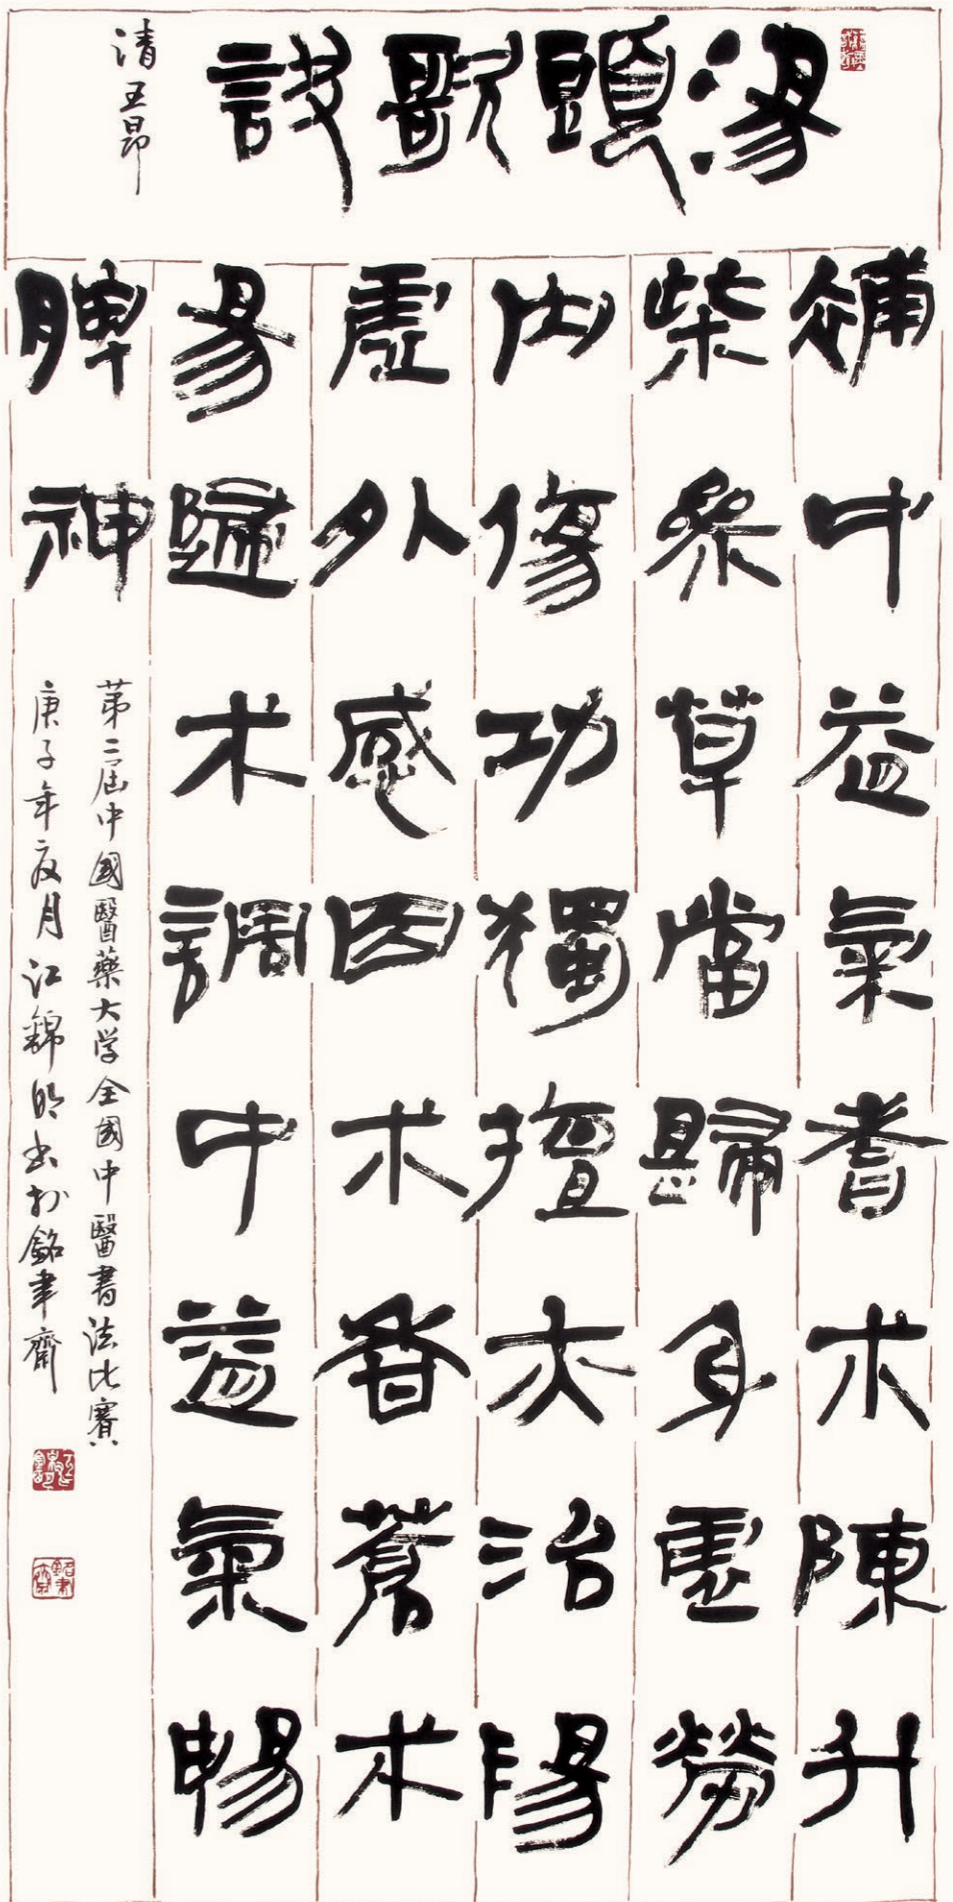 湯頭歌訣
清王昂
補中益氣耆术陳升
柴參草當歸身虛勞
內傷功獨擅亦治陽
虛外感因术香蒼术
易歸术調中益氣暢
脾神
第二屆中國醫藥大学全國中醫書法比賽
庚子年夏月江錦明書於銘聿齋